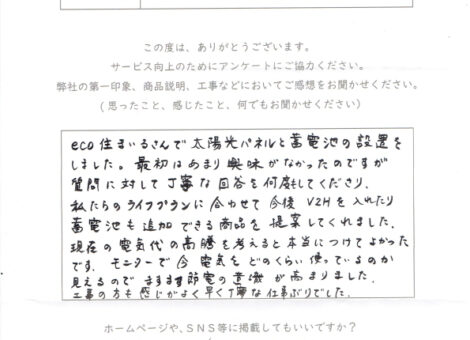 この度は、ありがとうございます。
サービス向上のためにアンケートにご協力ください。
弊社の第一印象、商品説明、工事などにおいてご感想をお聞かせください。
(思ったこと、感じたこと、何でもお聞かせください)
eco住まいるさんで太陽光パネルと蓄電池の設置を
しました。最初はあまり興味がなかったのですが
質問に対して丁寧な回答を何度もしてくださり、
私たちのライフプランに合わせて今後V2Hを入れたり
蓄電池も追加できる商品を提案してくれました。
現在の電気代の高騰を考えると本当につけてよかった
です。モニターで今電気をどのくらい使っているのか
見えるのでますます節電の意識が高まりました。
工事の方も感じがよく早く丁寧な仕事ぶりでした。
ホームページや、SNS等に掲載してもいいですか？